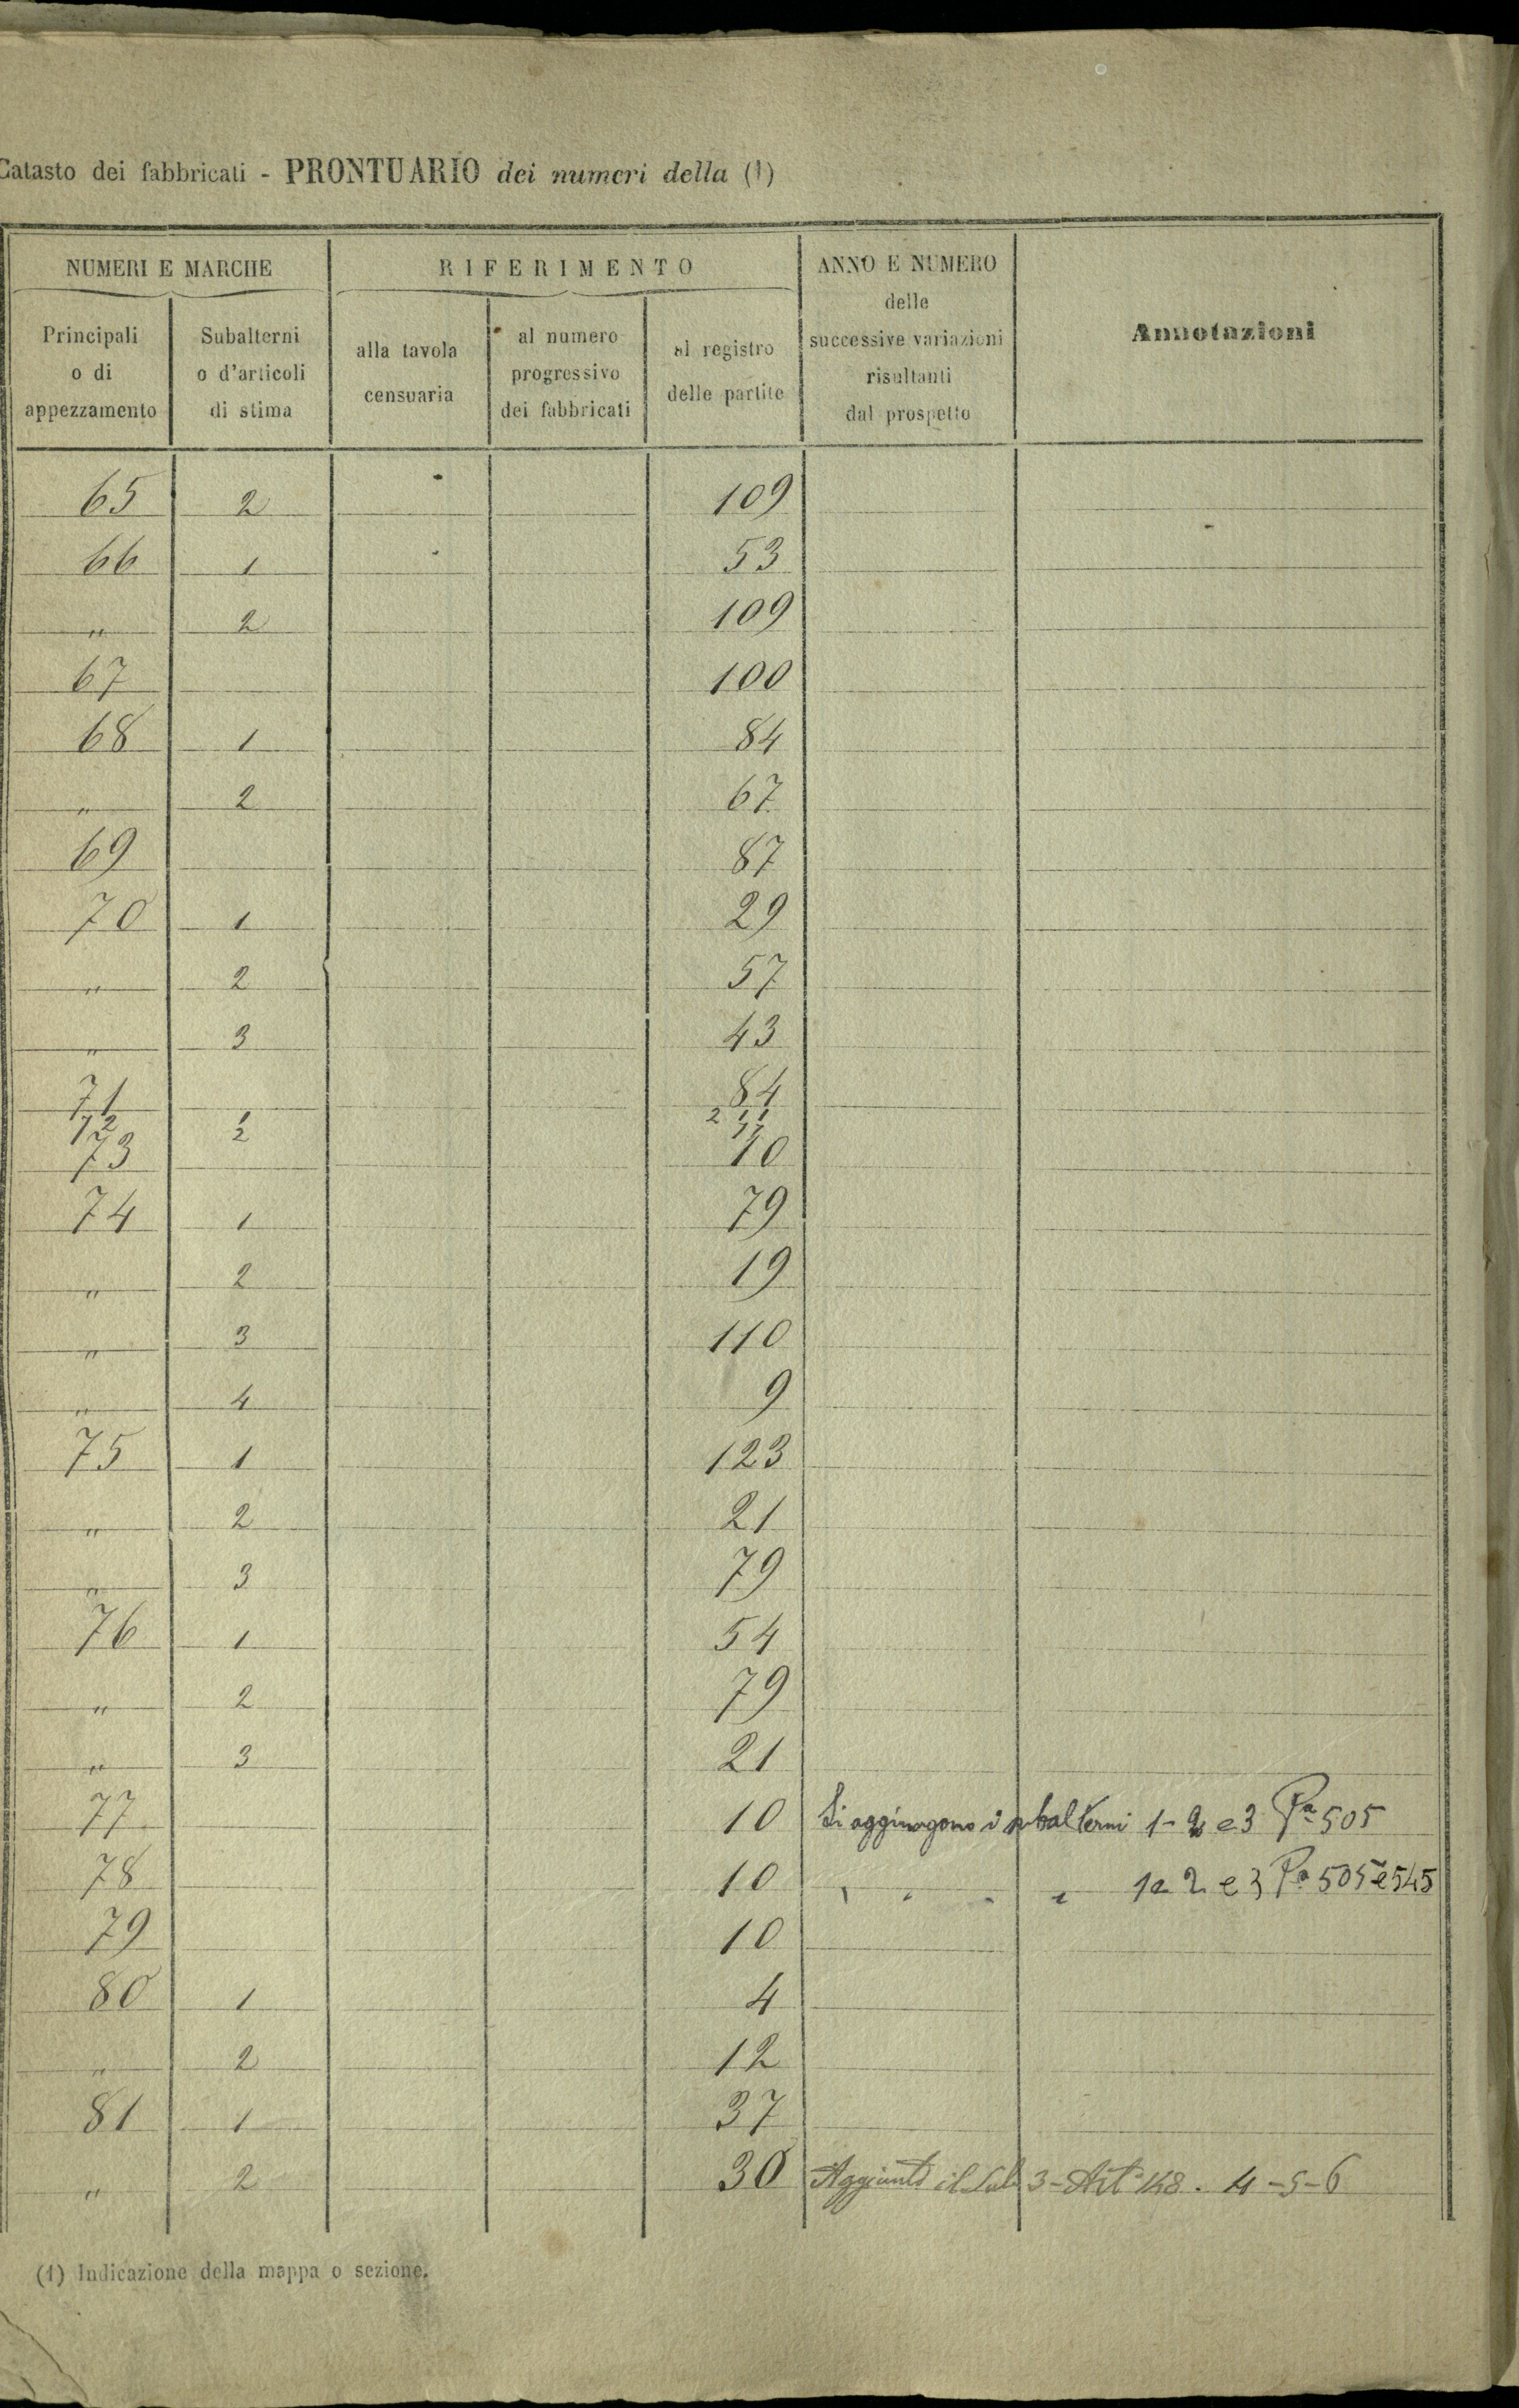 Catasto dei fabbricati - PRONTUARIO dei numeri della (1)
NUMERI E MARCHE RIFERIMENTO ANNO E NUMERO delle successive variazioni risultanti dal prospetto Annotazioni
Principali o di appezzamento Subalterni o d'articoli di stima alla tavola censuaria al numero progressivo dei fabbricati al registro delle partite
65 2 109
66 1 53
" 2 109
67 100
68 1 84
" 2 67
69 87
70 1 29
" 2 57
" 3 43
71 84
72 1 2
73 10
74 1 79
" 2 19
" 3 110
" 4 9
75 1 123
" 2 21
" 3 79
76 1 54
" 2 79
" 3 21
77 10 Si aggiungono i subalterni 1-2 e 3 Pa 505
78 10 " " " " 1 e 2 e 3 Pa 505 e 545
79 10
80 1 4
" 2 12
81 1 37
" 2 30 Aggiunto il Sub 3 - Art° 148. 4-5-6
(1) Indicazione della mappa o sezione.